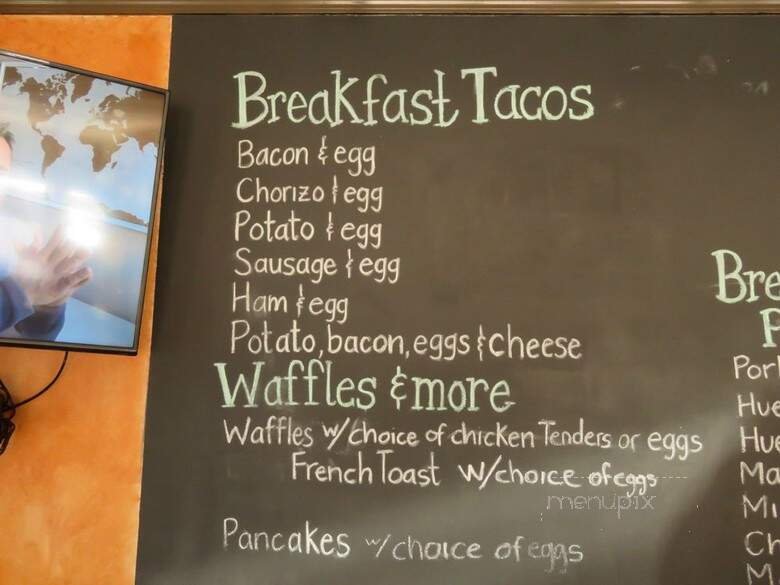 Breakfast Tacos
Bacon & egg
Chorizo & egg
Potato & egg
Sausage & egg
Ham & egg
Potato, bacon, eggs & cheese
Waffles & more
Waffles w/choice of chicken Tenders or eggs
French Toast w/choice of eggs
Pancakes w/choice of eggs
Bre
F
Por
Hue
Hue
Ma
Mi
Ch
M
menupix